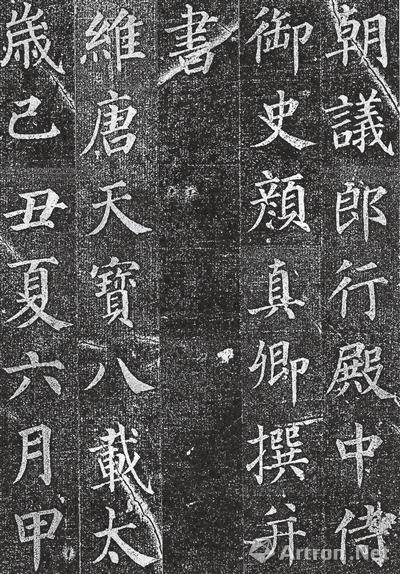 朝議郎行殿中侍
御史顔真卿撰并
書
維唐天寶八載太
歳己丑夏六月甲
Artron.Net